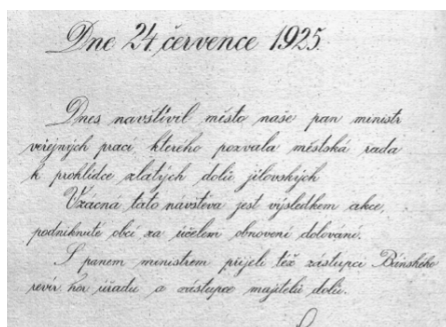 Dne 24. července 1925.
Dnes navštívil město naše pan ministr
veřejných prací kterého pozvala městská rada
k prohlídce zlatých dolů jílovských
Vzácná tato návsteva jest výsledkem akce,
podniknuté obcí za účelem obnovení dolování.
S panem ministrem přijeli též zástupci Báňského
revír. hor. úřadu a zástupce majitelů dolů.